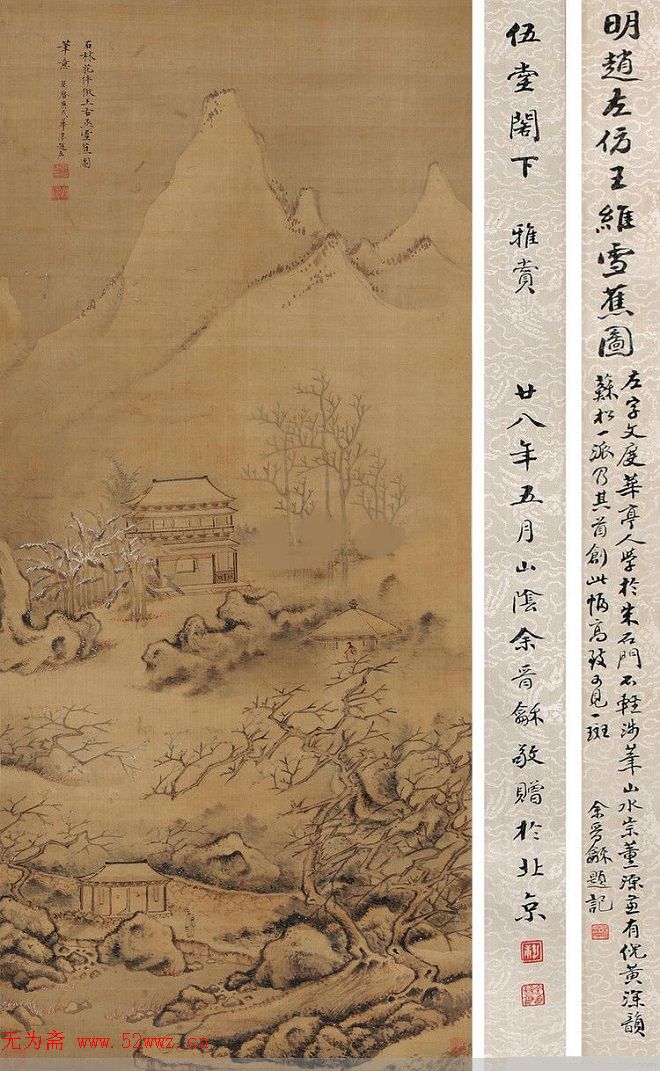 明趙左仿王維雪蕉圖
左字文度華亭人學於朱石門不輕涉筆山水宗董源兼有倪黃深韻
蘇松一派乃其首創此幀高致可見一斑
余晋龢題記
伍堂閣下 雅賞 廿八年五月山陰余晋龢敬贈於北京
倣王右丞雪蕉圖
筆意 萬曆庚戌華亭趙左
无为斋 www.52wwz.cn